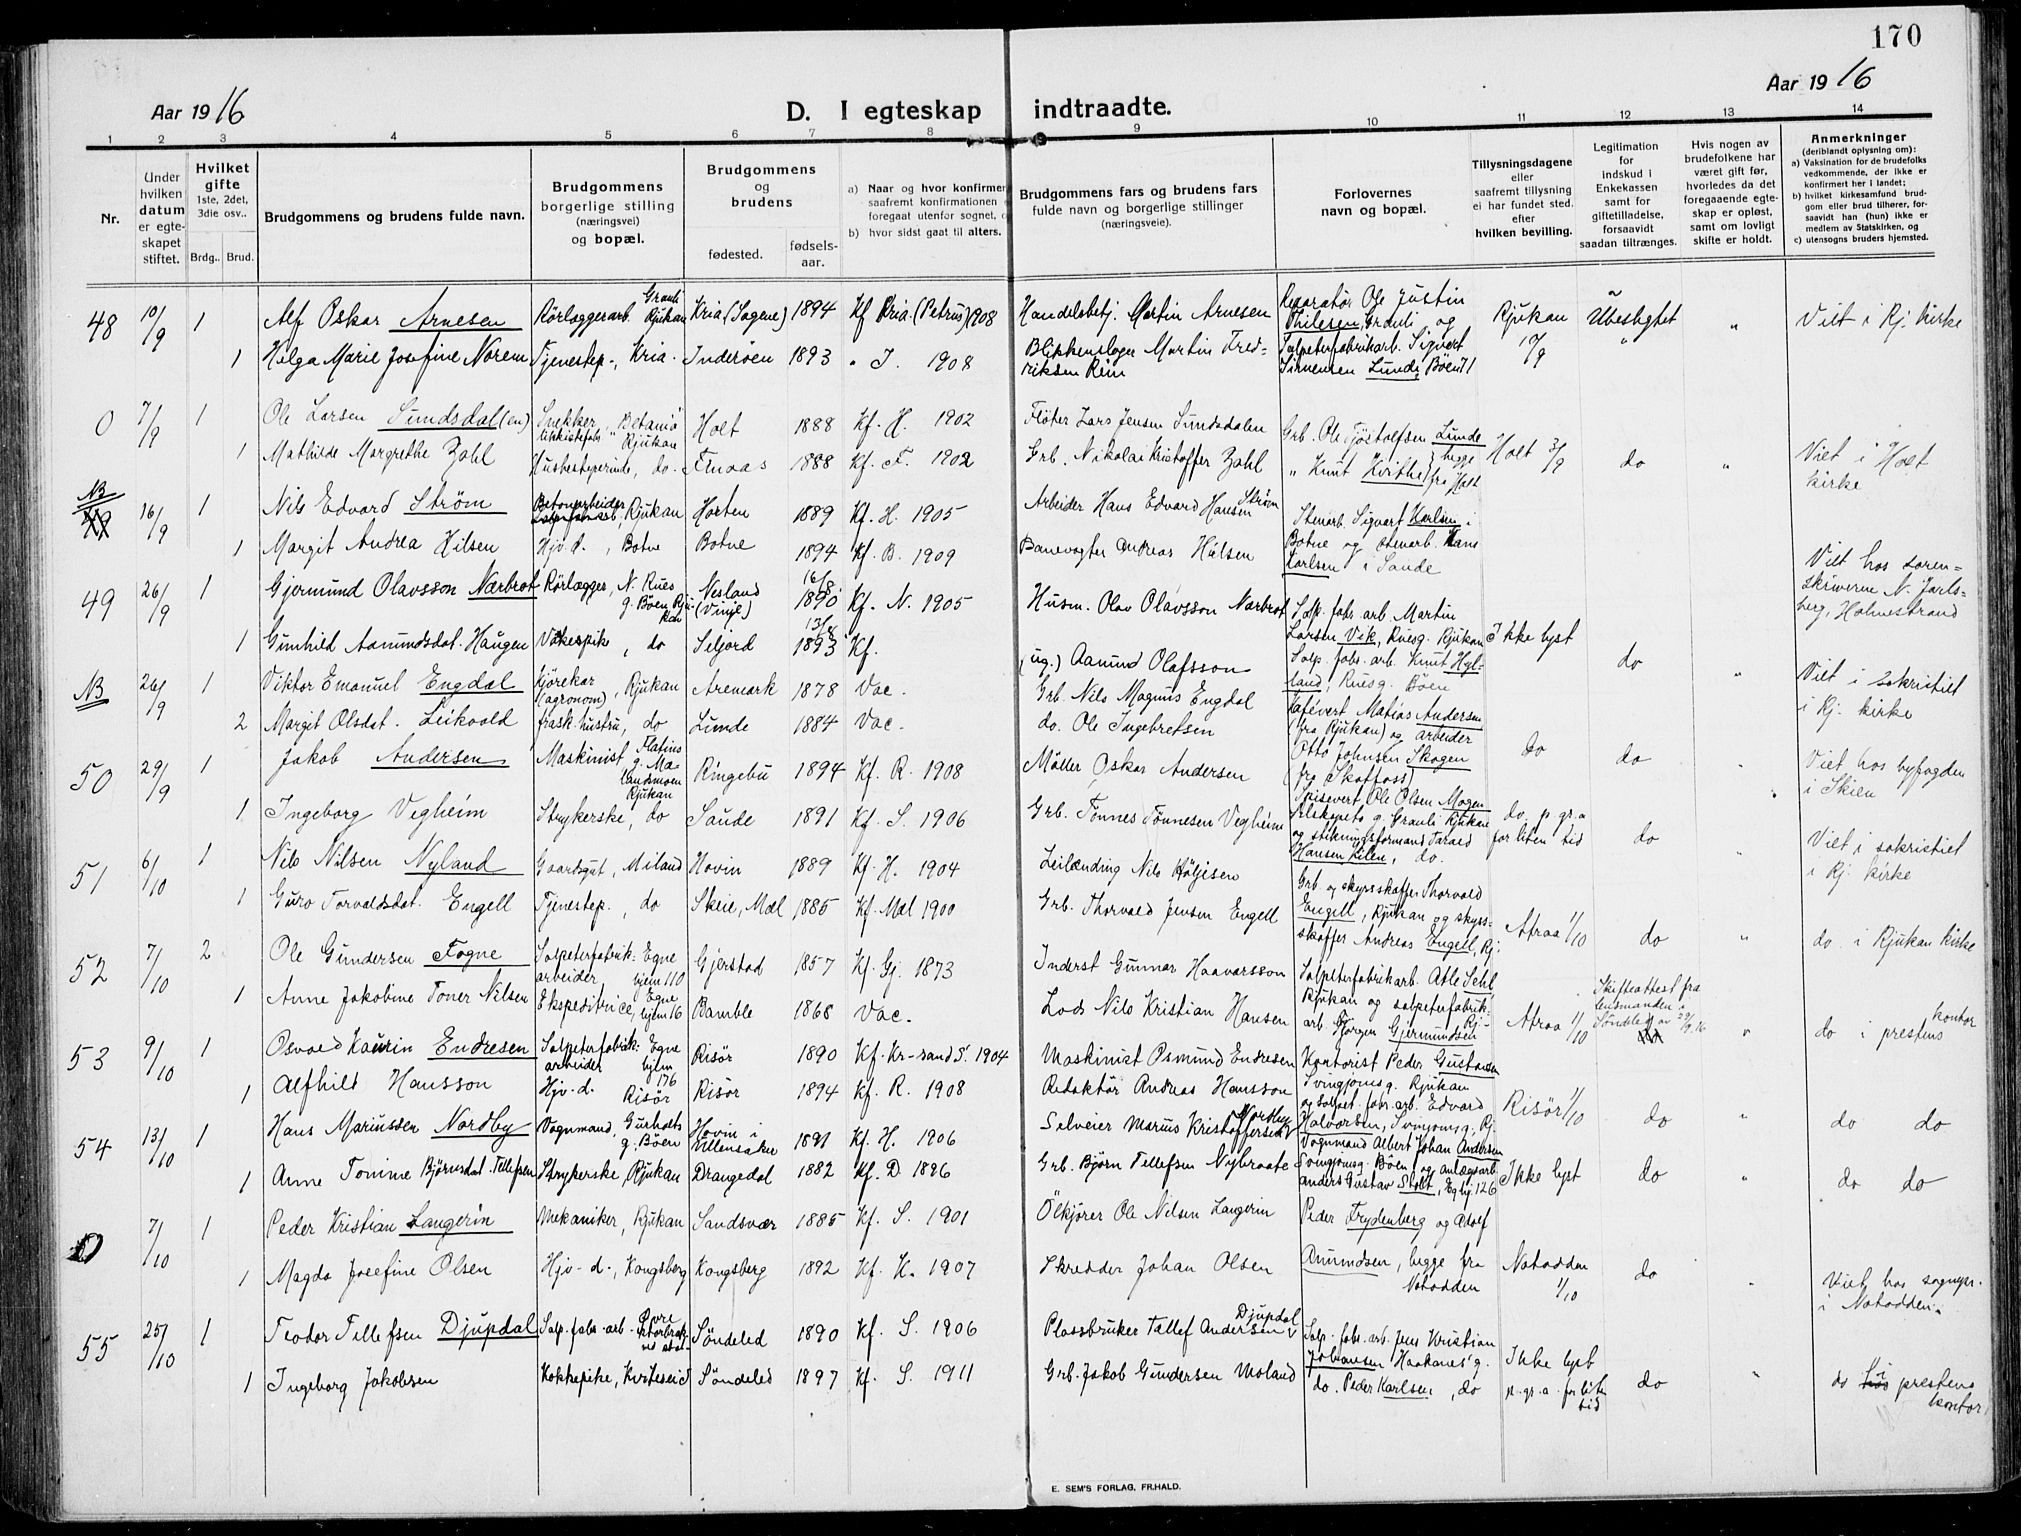 170
Aar 1916
D. I egteskap indtraadte.
Aar 1916
1 2 3 4 5 6 7 8 9 10 11 12 13 14
Nr.
Under hvilken datum er egteskapet stiftet.
Hvilket gifte 1ste, 2det, 3die osv..
Brdg.. Brud.
Brudgommens og brudens fulde navn.
Brudgommens borgerlige stilling (næringsvei) og bopæl.
Brudgommens og brudens
fødested.
fødsels-aar.
a) Naar og hvor konfirmer
saafremt konfirmationen
foregaat utenfor sognet,
b) hvor sidst gaat til alters.
Brudgommens fars og brudens fars fulde navn og borgerlige stillinger (næringsveie).
Forlovernes navn og bopæl.
Tillysningsdagene eller saafremt tillysning ei har fundet sted. efter hvilken bevilling.
Legitimation for indskud i Enkekassen samt for giftetilladelse, forsaavidt saadan tiltrænges.
Hvis nogen av brudefolkene har været gift før, hvorledes da det foregaaende egteskap er opløst, samt om lovligt skifte er holdt.
Anmerkninger (deriblandt oplysning om):
a) Vaksination for de brudefolks vedkommende, der ikke er konfirmert her i landet;
b) hvilket kirkesamfund brudgom eller brud tilhører, forsaavidt han (hun) ikke er medlem av Statskirken, og
c) utensogns bruders hjemsted.
48 10/9 1 Alf Oskar Arnesen Rörlæggerarb. Grauli Rjukan Kria (Sagene) 1894 Kf Kria. (Petrus) 1908 Handelsbetj. Martin Arnesen Reparatør Ole Justin Thilesen, Grauli og Rjukan Ubeslegtet " Viet i Rj. kirke
1 Helga Marie Josefine Norem Tjenestep., Kria. Inderøen 1893 " I. 1908 Blikkenslager Martin Fredriksen Rein Salpeterfabrikarb. Sigvert Lunde, Böen 71 10/9 "
0 7/9 1 Ole Larsen Sundsdal(en) Snekker, Rjukan Holt 1888 Kf. H. 1902 Fløter Lars Jensen Sundsdalen Grb. Ole Tjøstolfsen Lunde Holt 3/9 do " Viet i Holt kirke
1 Mathilde Margrethe Zahl Husbestyrerinde, do. 1888 Kf. F. 1902 Grb. Nikolai Kristoffer Zahl " Knut Kvithe, begge fra Holt
NB 16/9 1 Nils Edvard Strøm Betonarbeider, Rjukan Horten 1889 Kf. H. 1905 Arbeider Hans Edvard Hansen Strøm Stenarb. Sigvart Karlsen i Viet hos sorenskriveren N. Jarlsberg, Holmestrand
1 Margit Andrea Hilsen Hjv. d., Botne Botne 1894 Kf. B. 1909 Banevogter Andreas Hilsen Botne og stenarb. Hans Karlsen i Sande
49 26/9 1 Gjermund Olavsson Nærbrot Rörlægger, N. Rues g. Böen Rjukan Nesland (Vinje) 16/8 1890 Kf. N. 1905 Husm. Olav Olavsson Nærbrot Salp. fabr. arb. Martin Larsen Vik, Ruesg. Rjukan Ikke lyst do " Viet i sakristiet i Rj. kirke
1 Gunhild Aamundsdat. Haugen Vaskepike, do Seljord 1893 Kf. (ug.) Aamund Olafsson Salp. fabr. arb. Knut Hylland, Ruesg. Böen
NB 26/9 1 Viktor Emanuel Engdal Kjörekar (agronom), Rjukan Aremark 1878 Vac. Grb. Nils Magnus Engdal Kafévert Matias Andersen (fra Rjukan) og arbeider do do " Viet hos byfogden i Skien
2 Margit Olsdat. Leikvold frask. hustru, do Lunde 1884 Vac. do. Ole Ingebretsen Otto Johnsen Skogen (fra Skotfoss)
50 29/9 1 Jakob Andersen Maskinist Rjukan Ringebu 1894 Kf. R. 1908 Möller Oskar Andersen Spisevert Ole Olsen Mogen do. p. gr. a for liten tid do " Viet i sakristiet i Rj. kirke
1 Ingeborg Vegheim Strykerske, do Saude 1891 Kf. S. 1906 Grb. Tønnes Tønnesen Vegheim Grauli Rjukan og stikningsformand Hansen Kilen, do.
51 6/10 1 Nils Nilsen Nyland Gaardsgut, Miland Hovin 1889 Kf. H. 1904 Leilænding Nils Höljesen Grb. og skyssskaffer Thorvald Engell, Rjukan og skyssskaffer Andreas Engell, Rj. Atraa 1/10 do " do. i Rjukan kirke
1 Guro Torvaldsdat. Engell Tjenestep., do Skeie, Mæl 1885 Kf. Mæl 1900 Grb. Thorvald Jensen Engell
52 7/10 2 Ole Gundersen Fogne Salpeterfabrik-arbeider Egne hjem 110 Gjerstad 1857 Kf. Gj. 1873 Inderst Gunnar Haavorsson Salpeterfabrikarb. Atle Rjukan og salpeterfabrikarb. Jørgen Gjermundsen Rj. Atraa 1/10 Skifteattest fra lensmanden i Söndeled av 29/9 16 " do i prestens kontor
1 Anne Jakobine Toner Nilsen Ekspeditrice, Egne hjem 16 Bamble 1868 Vac. Lods Nils Kristian Hansen
53 9/10 1 Osvald Kaurin Endresen Salpeterfabrik-arbeider Egne hjem 176 Risör 1890 Kf. Kr-sand S. 1904 Maskinist Osmund Endresen Kontorist Peder Gustavsen Svingjomsg. Rjukan Risör 1/10 do " do do
1 Alfhilt Hansson Hjv-d. Risör Risör 1894 Kf. R. 1908 Redaktør Andreas Hansson og salpet. fabr. arb. Edvard Halvorsen, Svingjomsg. Rj.
54 13/10 1 Hans Mariussen Nordby Vognmand, g. Böen Hovin i Ullensaker 1891 Kf. H. 1906 Selveier Marius Kristoffersen Nordby Vognmand Albert Johan Andersen Svingjomsg. Böen og anlægsarb. Ikke lyst do " do do
1 Anne Tomine Björnsdat. Tellefsen Strykerske, Rjukan Drangedal 1882 Kf. D 1896 Grb. Bjørn Tellefsen Nybraate Anders Gustav Stolt, Eg hj. 126
0 7/10 1 Peder Kristian Langerin Mekaniker, Rjukan Sandsvær 1885 Kf. S. 1901 Ölkjører Ole Nilsen Langerin Peder Frydenberg og Adolf Notodden 1/10 do " Viet hos sognepr. i Notodden.
1 Magda Josefine Olsen Hjv-d-, Kongsberg Kongsberg 1892 Kf. K. 1907 Skredder Johan Olsen Amundsen, begge fra Notodden
55 25/10 1 Teodor Tellefsen Djupdal Salp. fabr. arb. Söndeled 1890 Kf. S. 1906 Plassbruker Tellef Andersen Djupdal Salp. fabr. arb. Jens Kristian Johansen Haakanesg. Ikke lyst p. gr. a. for liten tid do " do i prestens kontor
1 Ingeborg Jakobsen Kokkepike, Kviteseid Söndeled 1897 Kf. S. 1911 Grb. Jakob Gundersen Moland do. Peder Karlsen, do
E. SEM'S FORLAG, FR.HALD.